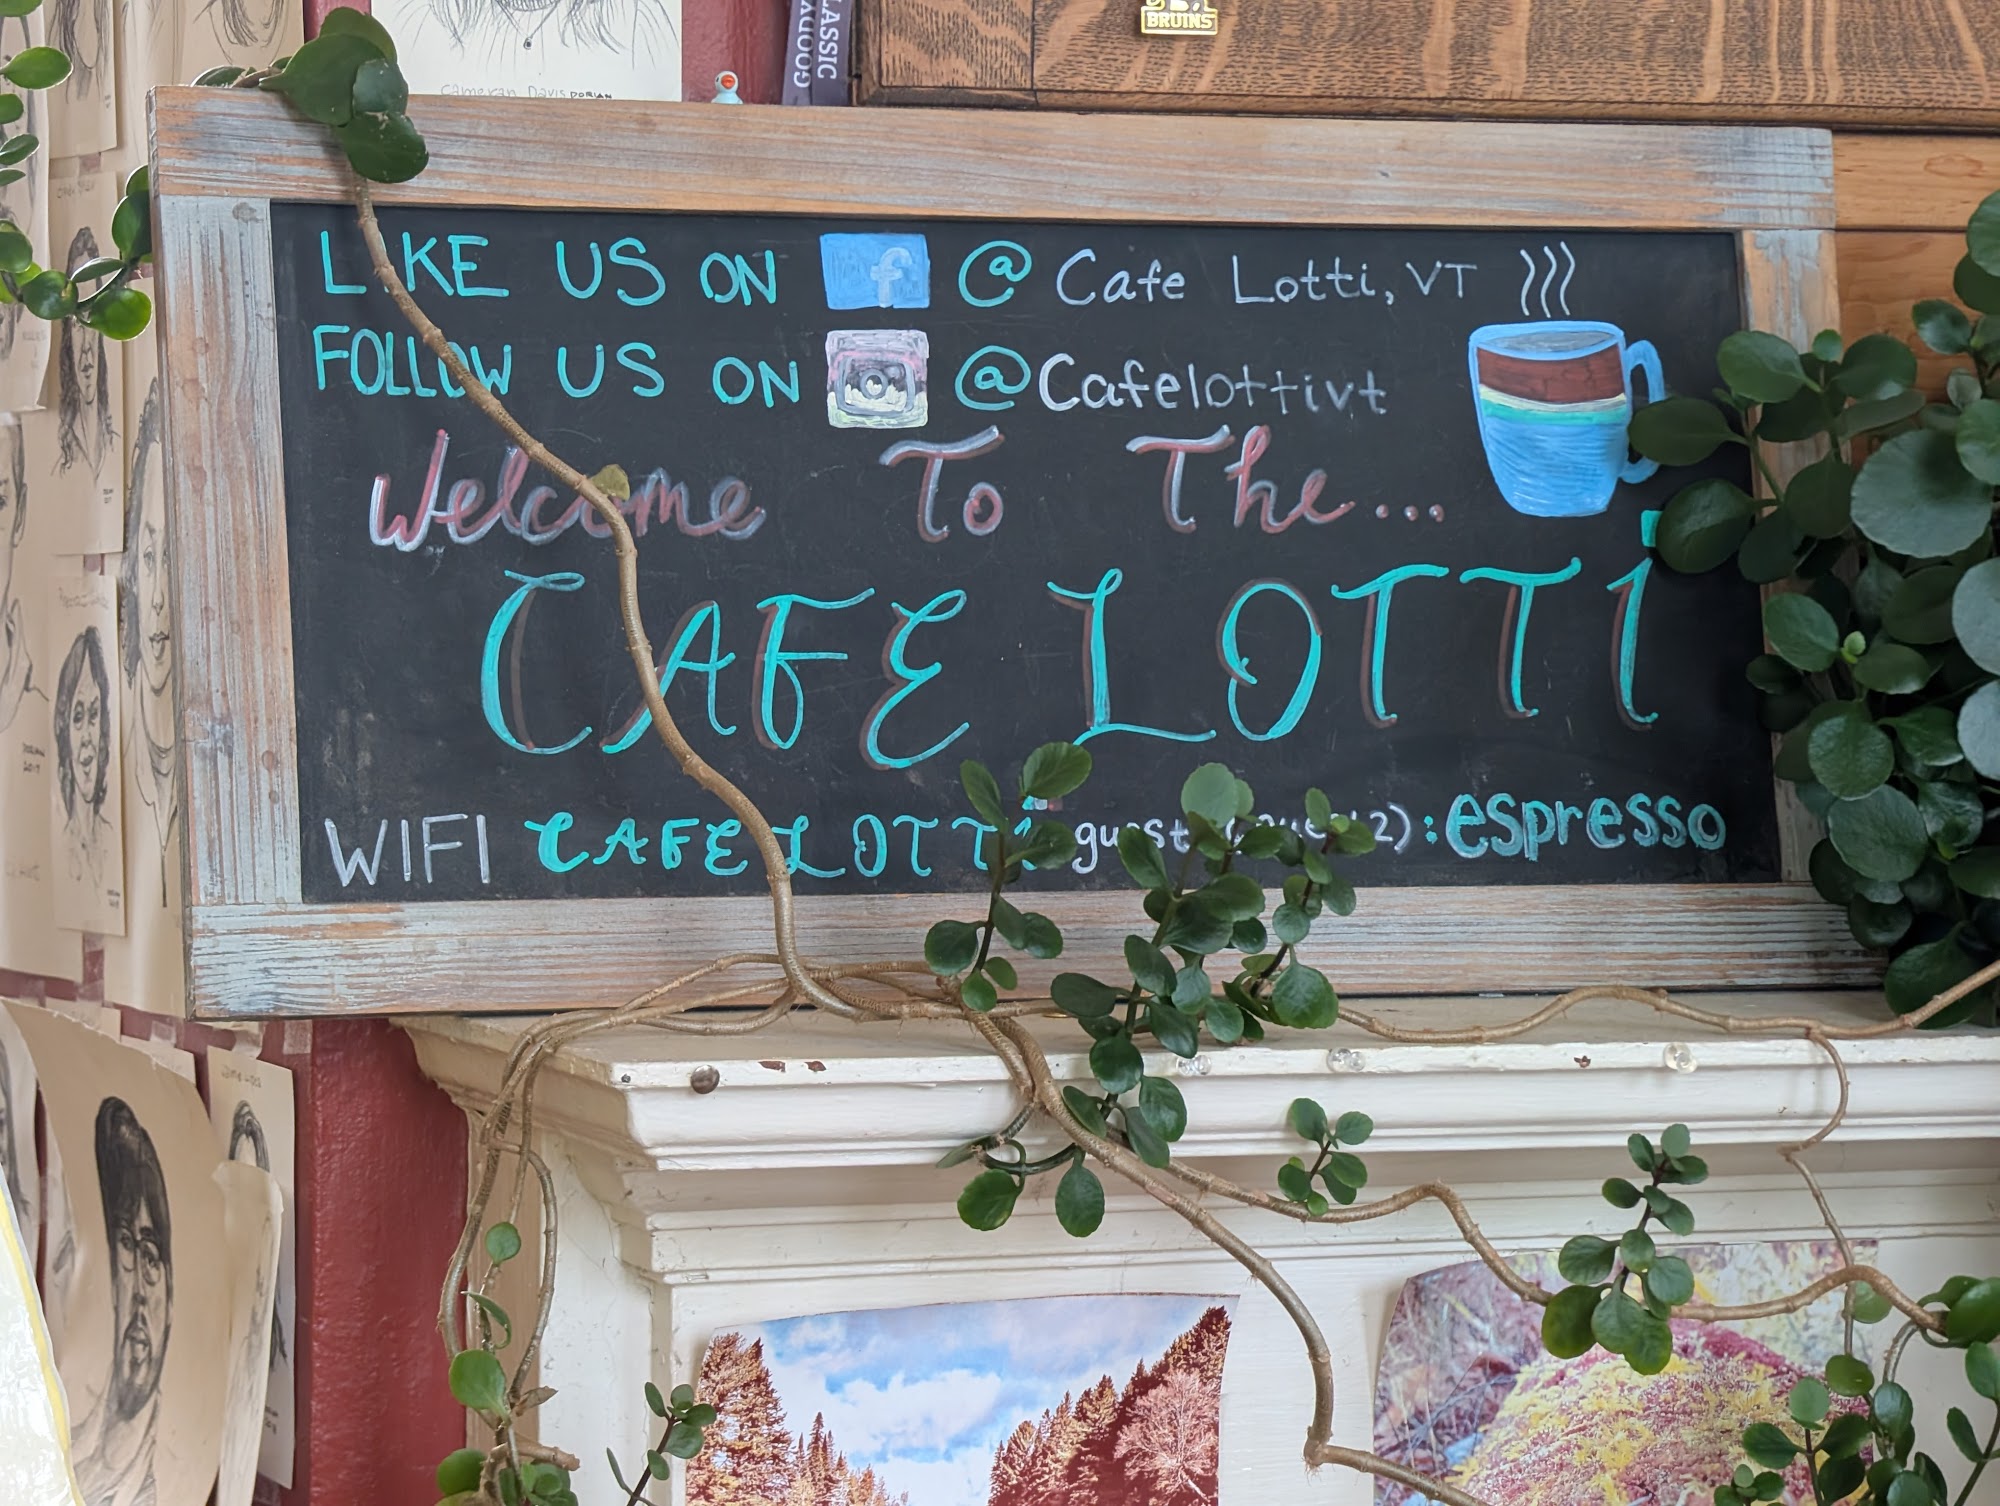 Cameran Davis DORIAN
GOODY
CLASSIC
BRUINS
LIKE US ON f @ Cafe Lotti, VT
FOLLOW US ON @Cafelottivt
Welcome To The...
CAFE LOTTI
WIFI CAFE LOTTI guest : espresso
DORIAN
2017